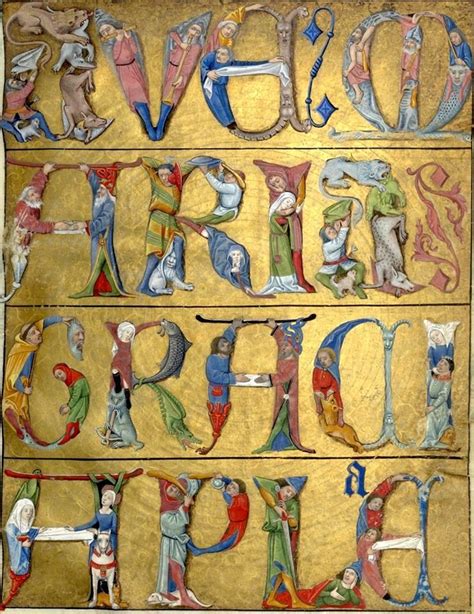 AVE : M
ARIA
GRACI
A PLE a